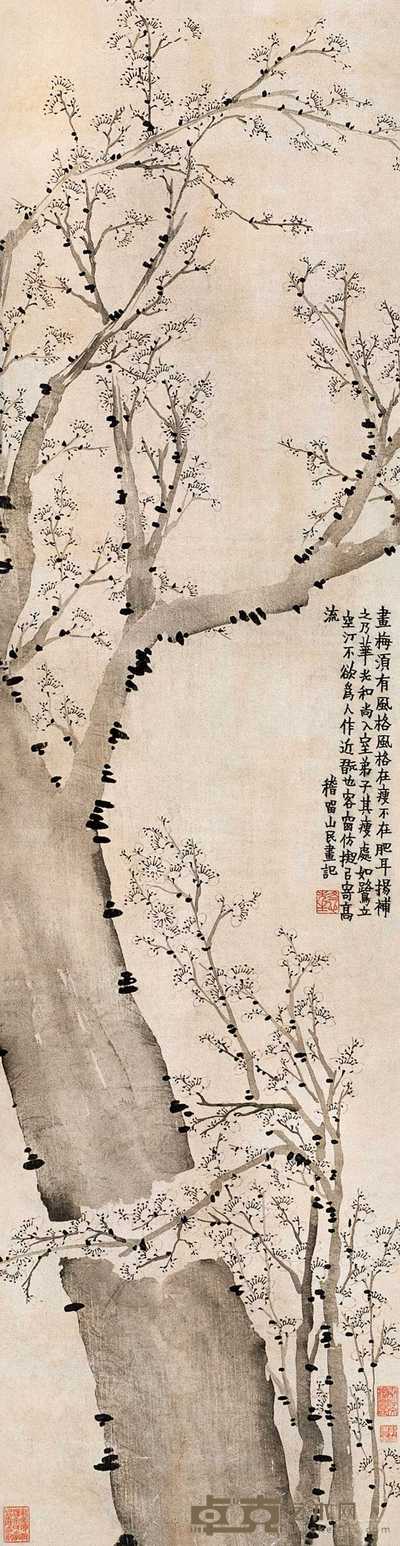 畫梅須有風格風格在瘦不在肥耳揚補
之乃華光和尚入室弟子其瘦處如鷺立
空汀不欲為人作近翫也客窗仿擬以寄高
流
稽留山民畫記
卓克艺术网